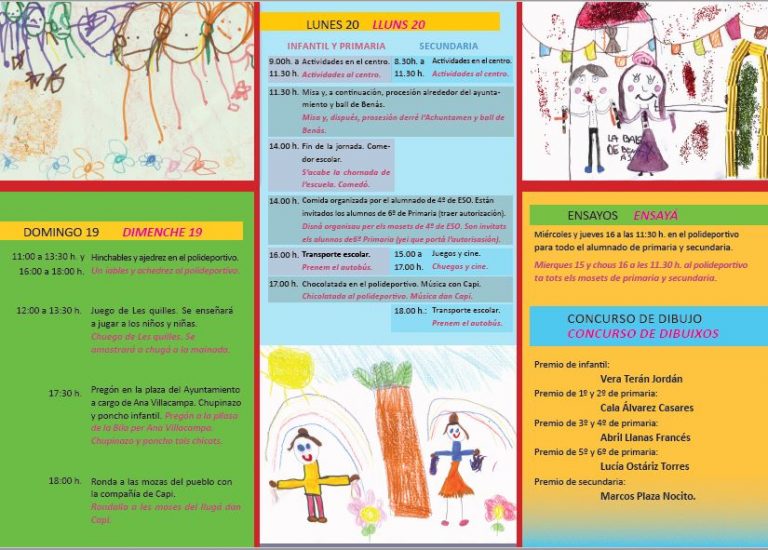 DOMINGO 19 DIMENCHE 19
11:00 a 13:30 h. y Hinchables y ajedrez en el polideportivo.
16:00 a 18:00 h. Un iables y achedrez al polideportivo.
12:00 a 13:30 h. Juego de Les quilles. Se enseñará
a jugar a los niños y niñas.
Chuego de Les quilles. Se
amostrará a chugá a la mainada.
17:30 h. Pregón en la plaza del Ayuntamiento
a cargo de Ana Villacampa. Chupinazo
y poncho infantil. Pregón a la pllasa
de la Bila per Ana Villacampa.
Chupinazo y poncho tals chicots.
18:00 h. Ronda a las mozas del pueblo con
la compañía de Capi.
Rondalla a les moses del llugá dan
Capi.
LUNES 20 LLUNS 20
INFANTIL Y PRIMARIA SECUNDARIA
9.00h. a Actividades en el centro. 8.30h. a Actividades en el centro.
11.30 h. Actividades al centro. 11.30 h. Actividades al centro.
11.30 h. Misa y, a continuación, procesión alrededor del ayunta-
miento y ball de Benás.
Misa y, dispués, prosesión derré l'Achuntamen y ball de
Benás.
14.00 h. Fin de la jornada. Come-
dor escolar.
S'acabe la chornada de
l'escuela. Comedó.
14.00 h. Comida organizada por el alumnado de 4º de ESO. Están
invitados los alumnos de 6º de Primaria (traer autorización).
Disná organisau pers mosets de 4º de ESO. Son invitats
els alumnos de6º Primaria (yei que portá l'autorisasión).
16.00 h. Transporte escolar. 15.00 a Juegos y cine.
Prenem el autobús. 17.00 h. Chuegos y cine.
17.00 h. Chocolatada en el polideportivo. Música con Capi.
Chicolatada al polideportivo. Música dan Capi.
18.00 h.: Transporte escolar.
Prenem el autobús.
LA BALL
DE BEN
AS
ENSAYOS ENSAYA
Miércoles y jueves 16 a las 11:30 h. en el polideportivo
para todo el alumnado de primaria y secundaria.
Mierques 15 y chous 16 a les 11.30 h. al polideportivo
ta tots els mosets de primaria y secundaria.
CONCURSO DE DIBUJO
CONCURSO DE DIBUIXOS
Premio de infantil:
Vera Terán Jordán
Premio de 1º y 2º de primaria:
Cala Álvarez Casares
Premio de 3º y 4º de primaria:
Abril Llanas Francés
Premio de 5º y 6º de primaria:
Lucía Ostáriz Torres
Premio de secundaria:
Marcos Plaza Nocito.